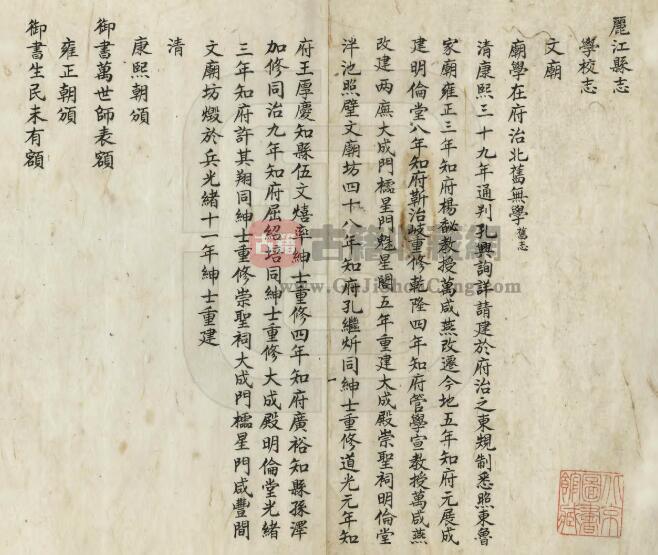 麗江縣志
學校志
文廟
廟學在府治北舊無學舊志
清康熙三十九年通判孔興詢詳請建於府治之東規制悉照東魯
家廟雍正三年知府楊馝教授萬咸燕改遷今地五年知府元展成
建明倫堂八年知府靳治岐重修乾隆四年知府管學宣教授萬咸燕
改建兩廡大成門櫺星門魁星閣五年重建大成殿崇聖祠明倫堂
泮池照壁文廟坊四十八年知府孔繼炘同紳士重修道光元年知
府王厚慶知縣伍文熺率紳士重修四年知府廣裕知縣孫澤
加修同治九年知府屈紹培同紳士重修大成殿明倫堂光緒
三年知府許其翔同紳士重修崇聖祠大成門櫺星門咸豐間
文廟坊燬於兵光緒十一年紳士重建
清
康熙朝頒
御書萬世師表額
雍正朝頒
御書生民未有額
古籍
古籍收藏网
www.GuJiShouCang.com